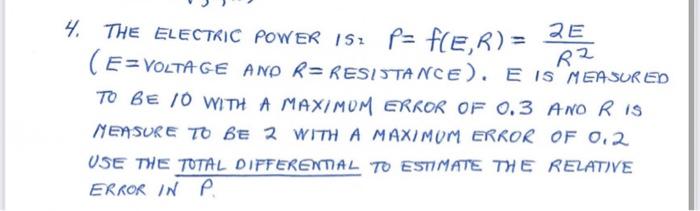 4. THE ELECTRIC POWER IS: P = f(E,R) = 2E / R²
(E=VOLTAGE AND R=RESISTANCE). E IS MEASURED
TO BE 10 WITH A MAXIMUM ERROR OF 0.3 AND R IS
MEASURE TO BE 2 WITH A MAXIMUM ERROR OF 0.2
USE THE TOTAL DIFFERENTIAL TO ESTIMATE THE RELATIVE
ERROR IN P.